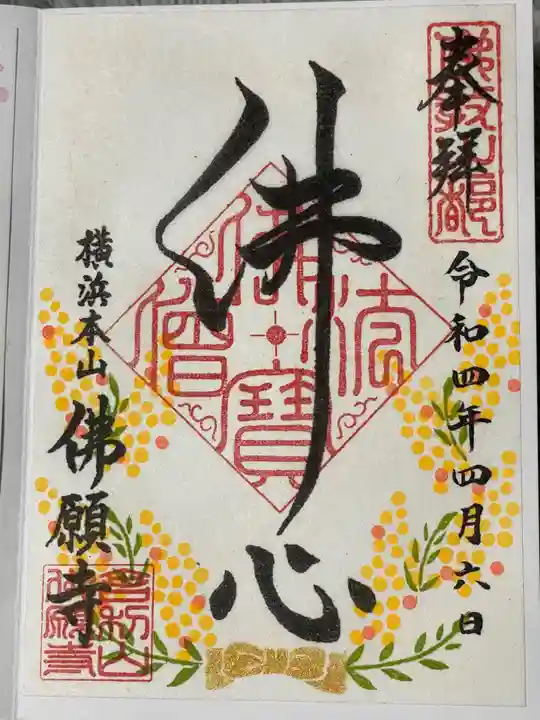 奉拝
令和四年四月六日
佛心
横浜本山
佛願寺
佛法僧寳